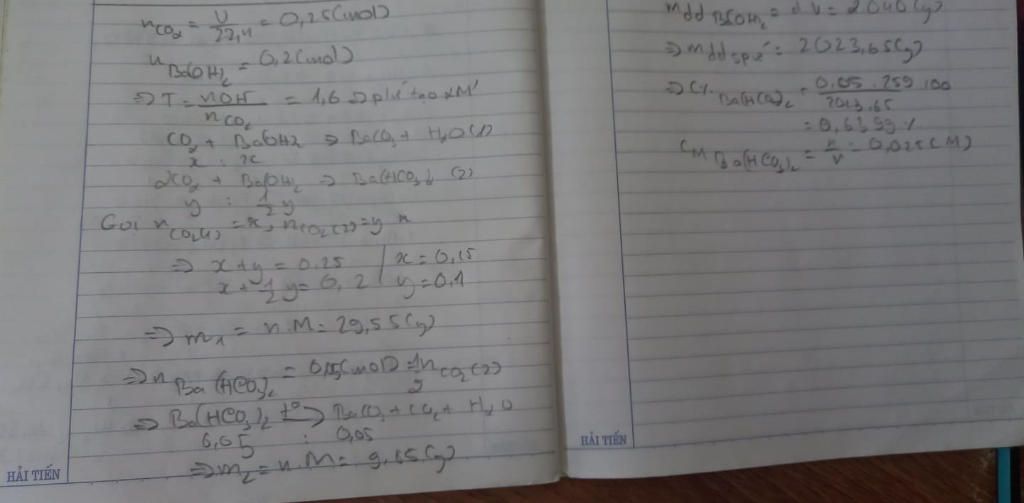 nCO₂ = V/22,4 = 0,25(mol)
nBa(OH)₂ = 0,2(mol)
=> T = nOH⁻/nCO₂ = 1,6 => pứ tạo 2M'
CO₂ + Ba(OH)₂ => BaCO₃ + H₂O (1)
x : x
2CO₂ + Ba(OH)₂ => Ba(HCO₃)₂ (2)
y : 1/2 y
Gọi nCO₂(1) = x, nCO₂(2) = y
=> x + y = 0,25 | x = 0,15
x + 1/2 y = 0,2 | y = 0,1
=> m₁ = n.M = 29,55(g)
=> nBa(HCO₃)₂ = 0,05(mol) = 1/2 nCO₂(2)
=> Ba(HCO₃)₂ t°=> BaCO₃ + CO₂ + H₂O
0,05 : 0,05
=> m₂ = n.M = 9,85(g)
HẢI TIẾN
mdd Ba(OH)₂ = d.V = 2040(g)
=> mdd spứ = 2023,65(g)
=> C% Ba(HCO₃)₂ = 0,05.259.100/2023,65
= 0,6399%
CM Ba(HCO₃)₂ = n/V = 0,025(M)
HẢI TIẾN